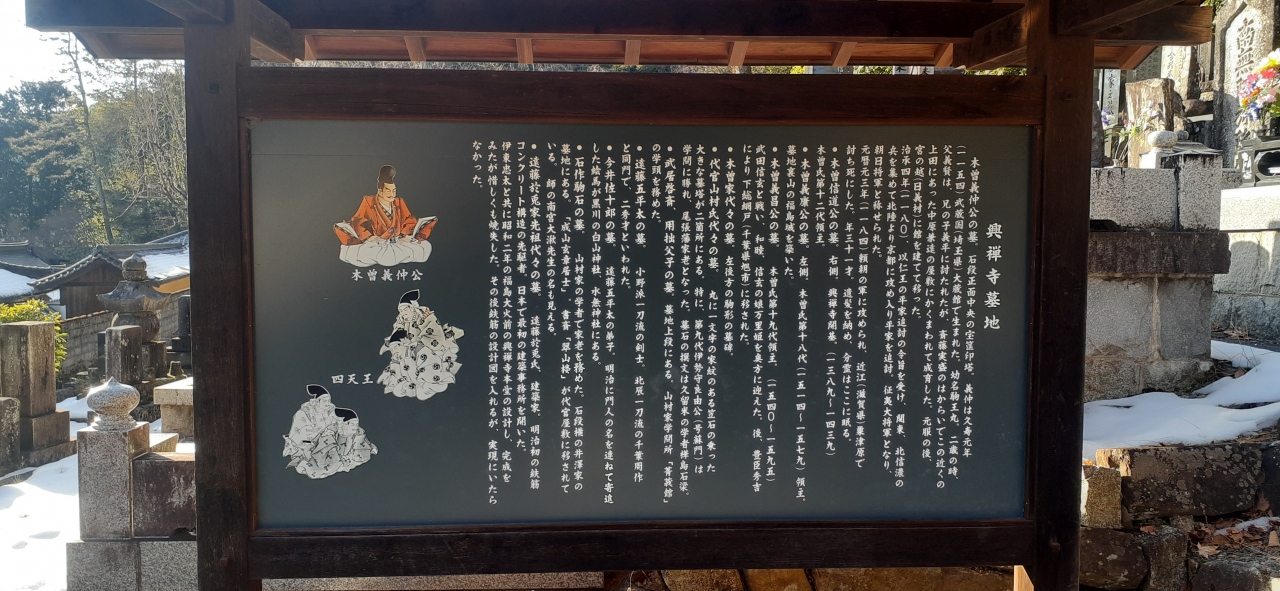 興禅寺墓地
木曽義仲公の墓、石段正面中央の宝篋印塔、義仲は久寿元年
(一一五四)武蔵国(埼玉県)大蔵館で生まれた。幼名駒王丸、二歳の時、
父義賢は、兄の子義平に討たれたが、斉藤実盛のはからいでこの近くの
上田にあった中原兼遠の屋敷にかくまわれて成育した。元服の後、
宮の越(日義村)に館を建てて移った。
治承四年(一一八〇)、以仁王の平家追討の令旨を受け、関東、北信濃の
兵を集めて北陸より京都に攻め入り平家を追討、征夷大将軍となり、
朝日将軍と称せられた。
元暦元三年(一一八四)頼朝の軍に攻められ、近江(滋賀県)粟津原で
討ち死にした、年三十一才、遺髪を納め、分霊はここに眠る。
●木曽信道公の墓、右側、興禅寺開基、(一三八九~一四三九)
木曽氏第十二代領主。
●木曽義康公の墓、左側、木曽氏第十八代(一五一四~一五七九)領主、
墓地裏山の福島城を築いた。
●木曽義昌公の墓、木曽氏第十九代領主、(一五四〇~一五九五)
武田信玄と戦い、和睦、信玄の娘万里姫を奥方に迎えた。後、豊臣秀吉
により下総網戸(千葉県旭市)に移された。
●木曽家代々の墓、左後方の駒形の墓碑。
●代官山村氏代々の墓、丸に一文字の家紋のある笠石の乗った
大きな墓碑が二箇所にある。特に、第九代伊勢守良由公(号蘇門)は
学問に勝れ、尾張藩家老となった。墓石の撰文は久留米の学者樺島石梁。
●武居啓斎、用拙父子の墓、墓地上段にある。山村家学問所「菁莪館」
の学頭を務めた。
●遠藤五平太の墓、小野派一刀流の剣士、北辰一刀流の千葉周作
と同門で、二秀才といわれた。
●今井佐十郎の墓、遠藤五平太の弟子、明治に門人の名を連ねて寄進
した絵馬が黒川の白山神社、水無神社にある。
●石作駒石の墓、山村家の学者で家老を務めた。石段横の井澤家の
墓地にある。「成山文章居士」、書斎「翠山楼」が代官屋敷に移されて
いる。師の南宮大湫先生の名も見える。
●遠藤於菟家先祖代々の墓、遠藤於菟氏、建築家、明治初の鉄筋
コンクリート構造の先駆者、日本で最初の建築事務所を開いた。
伊東忠太と共に昭和二年の福島大火前の興禅寺本堂の設計し、完成を
みたが惜しくも焼失した。その後鉄筋の設計図を入れるが、実現にいたら
なかった。
木曽義仲公
四天王